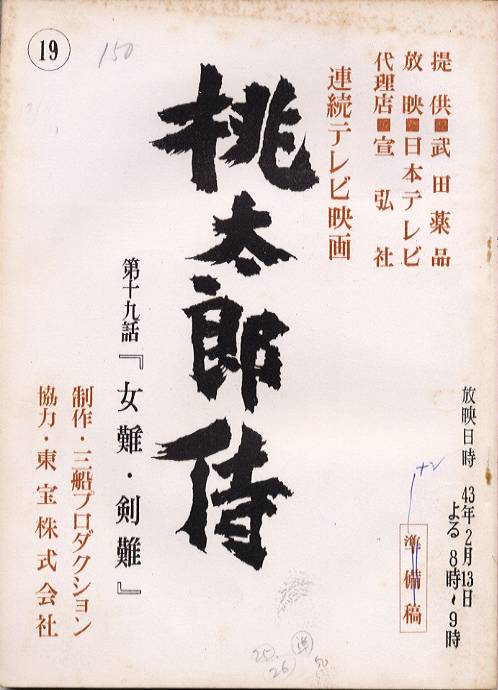 提供■武田薬品
放映■日本テレビ
代理店■宣弘社
連続テレビ映画
桃太郎侍
第十九話『女難・剣難』
制作・三船プロダクション
協力・東宝株式会社
放映日時 43年2月13日
よる 8時〜9時
準備稿
19
150
25
26